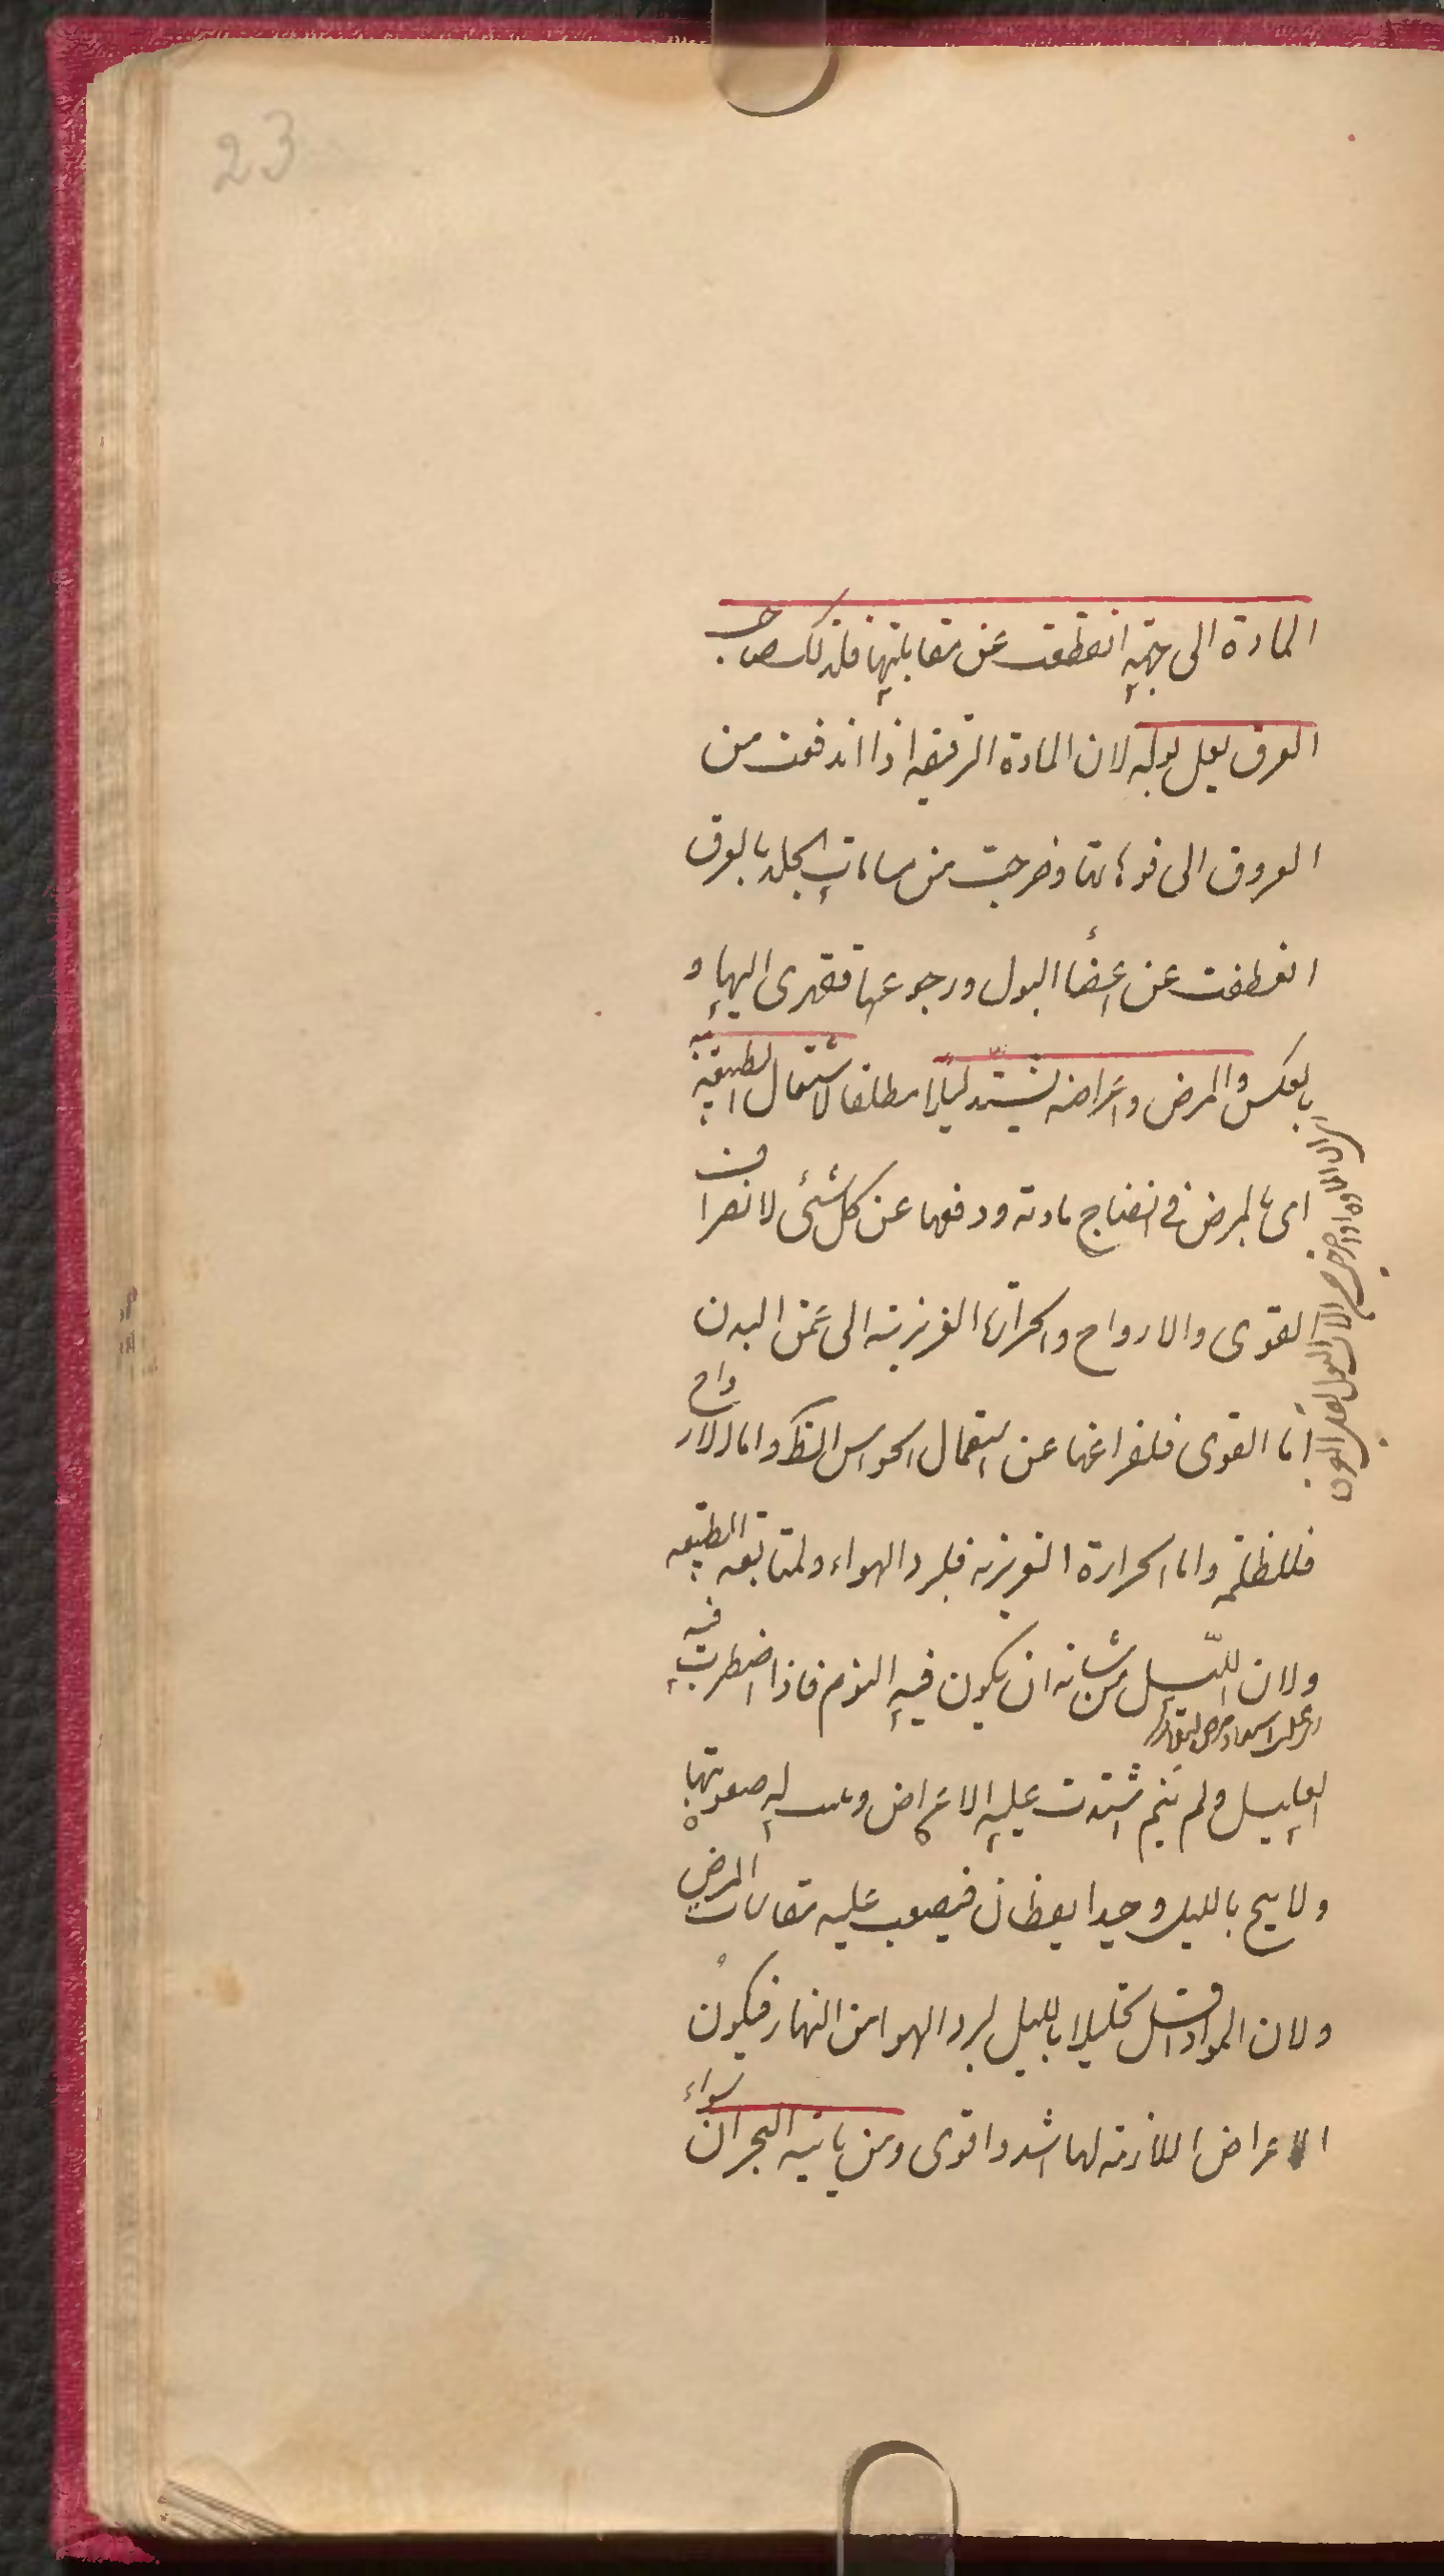 23
المادة الى جهة انعطفت عن مقابلتها فلذلك صاحب
العرق يقل بوله لان المادة الرقيقه اذا اندفعت من
العروق الى فوهاتها وخرجت من مسامات الجلد بالعرق
انعطفت عن اعضاء البول ورجوعها قهقرى اليها و
بالعكس والمرض واعراضه تشتد ليلا مطلقا لاشتغال الطبيعة فيه
اى بالمرض فى انضاج مادته ودفعها عن كل شئى لانصراف
القوى والارواح والحرارة الغريزية الى عمق البدن
اما القوى فلفراغها عن استعمال الحواس الظ واما الارواح
فللظلمة واما الحرارة الغريزيه فلبرد الهواء ولمتابعه الطبيعه
ولان الليل من شانه ان يكون فيه النوم فاذا اضطرب فيه
العليل ولم ينم اشتدت عليه الاعراض و صعوبتها
ولا بالليل وحيدا يقظان فيصعب عليه مقاسات المرض
ولان المواد اقل تحليلا بالليل لبرد الهوا من النهار فيكون
الاعراض اللازمة لها اشد واقوى ومن ياتيه البحران سواء